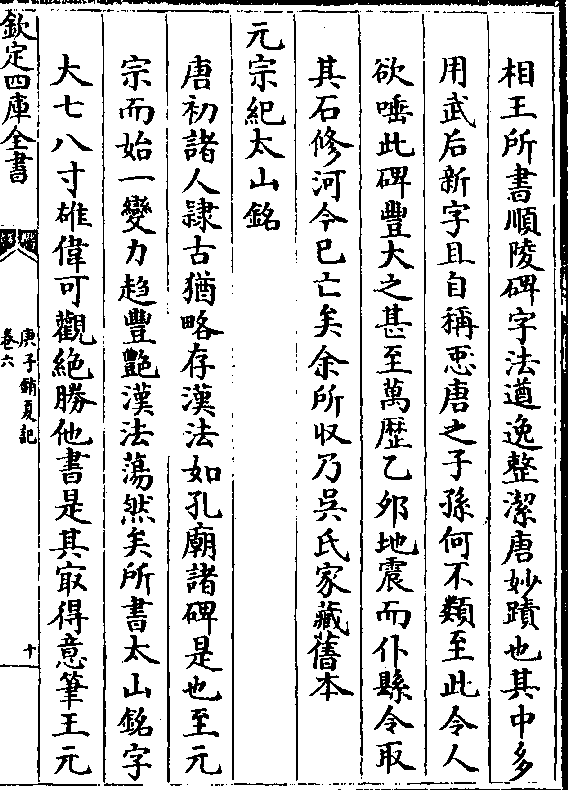 相王所書順陵碑字法遒逸整潔唐妙蹟也其中多
用武后新字且自稱惡唐之子孫何不類至此令人
欲唾此碑豐大之甚至萬歴乙夘地震而仆縣令取
其石修河今已亡矣余所収乃吳氏家藏舊本
元宗紀太山銘
唐初諸人隷古猶略存漢法如孔廟諸碑是也至元
宗而始一變力趋豐艷漢法蕩然矣所書太山銘字
大七八寸雄偉可觀絶勝他書是其㝡得意筆王元
欽定四庫全書
庚子銷夏記
卷六
十